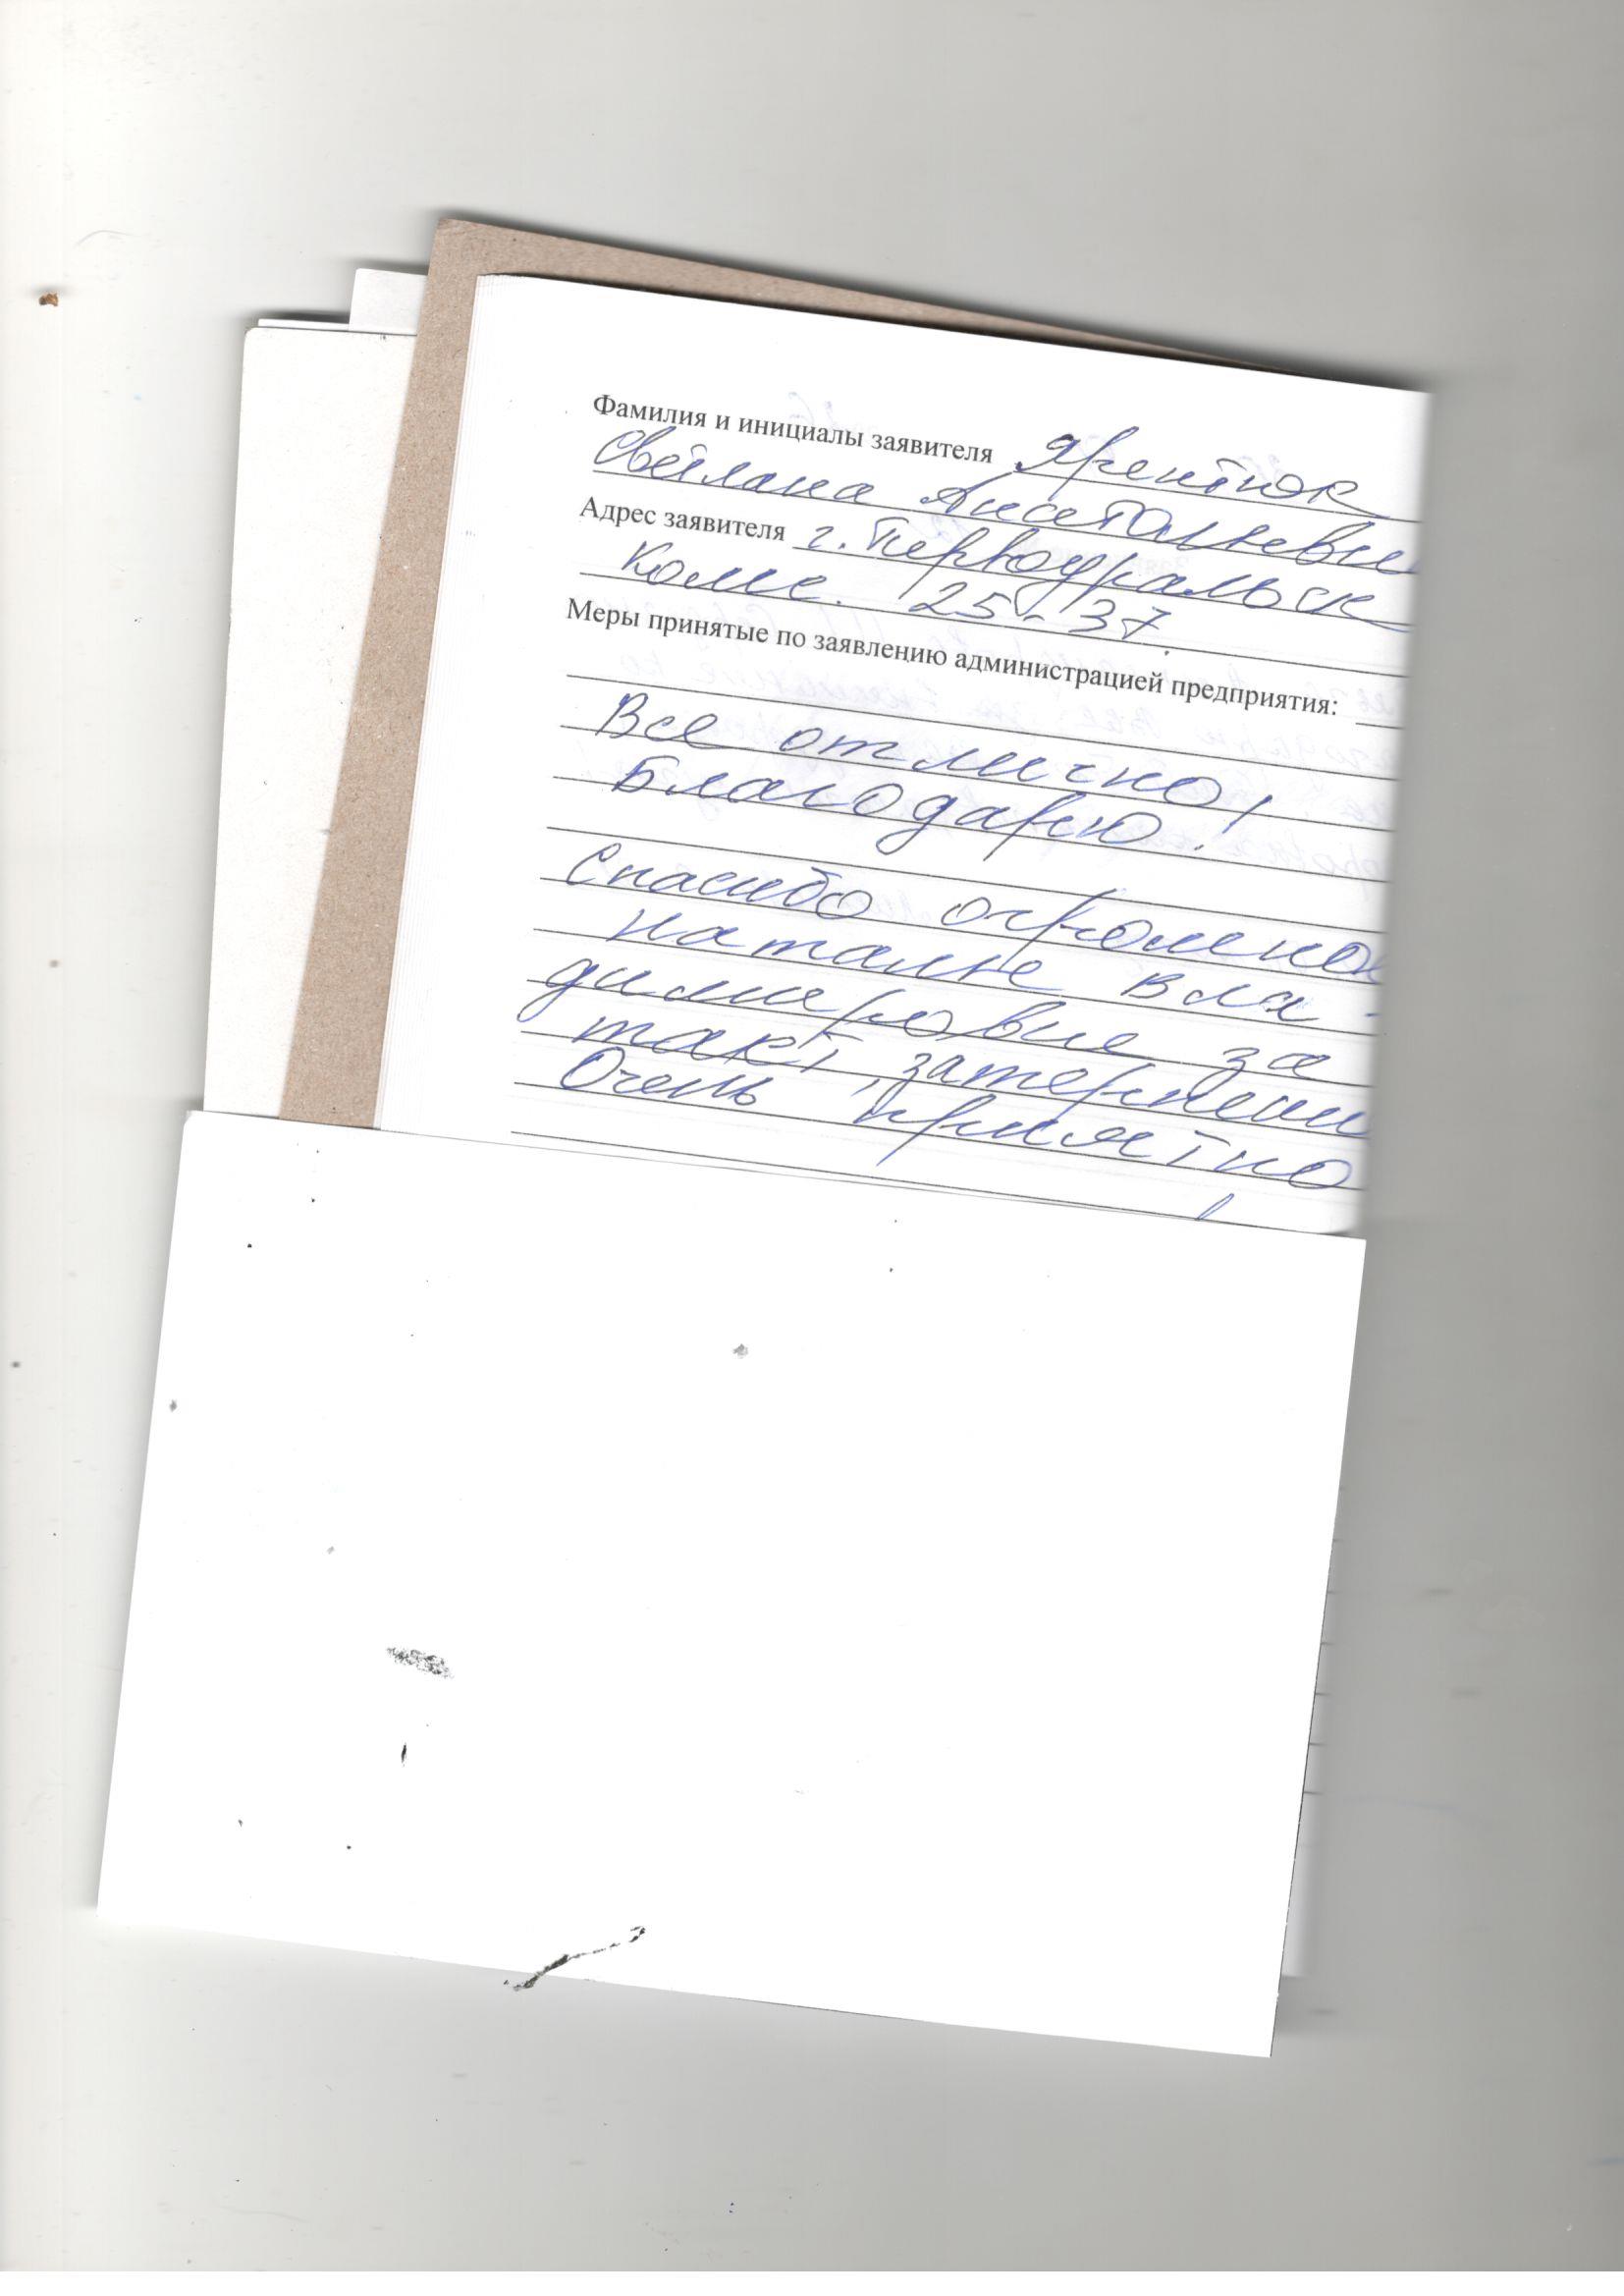 Фамилия и инициалы заявителя Арентюк
Светлана Анатольевн
Адрес заявителя г. Первоуральск
Комс. 25-37.
Меры принятые по заявлению администрацией предприятия:
Все отлично!
Благодарю!
Спасибо огромно
Наталье Вла-
димировне за
такт, затерпени
Очень приятно
!